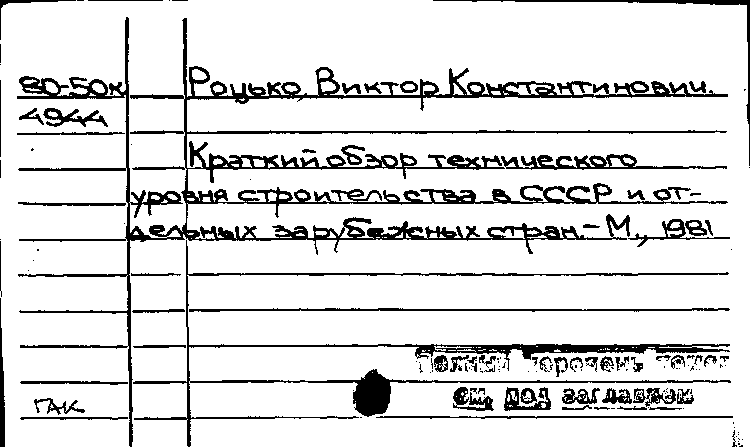 80-50к Роцько, Виктор Константинович.
4944
Краткий обзор технического
уровня строительства в СССР и от-
дельных зарубежных стран.- М., 1981
Полный перечень
см. под заглавием
ГАК